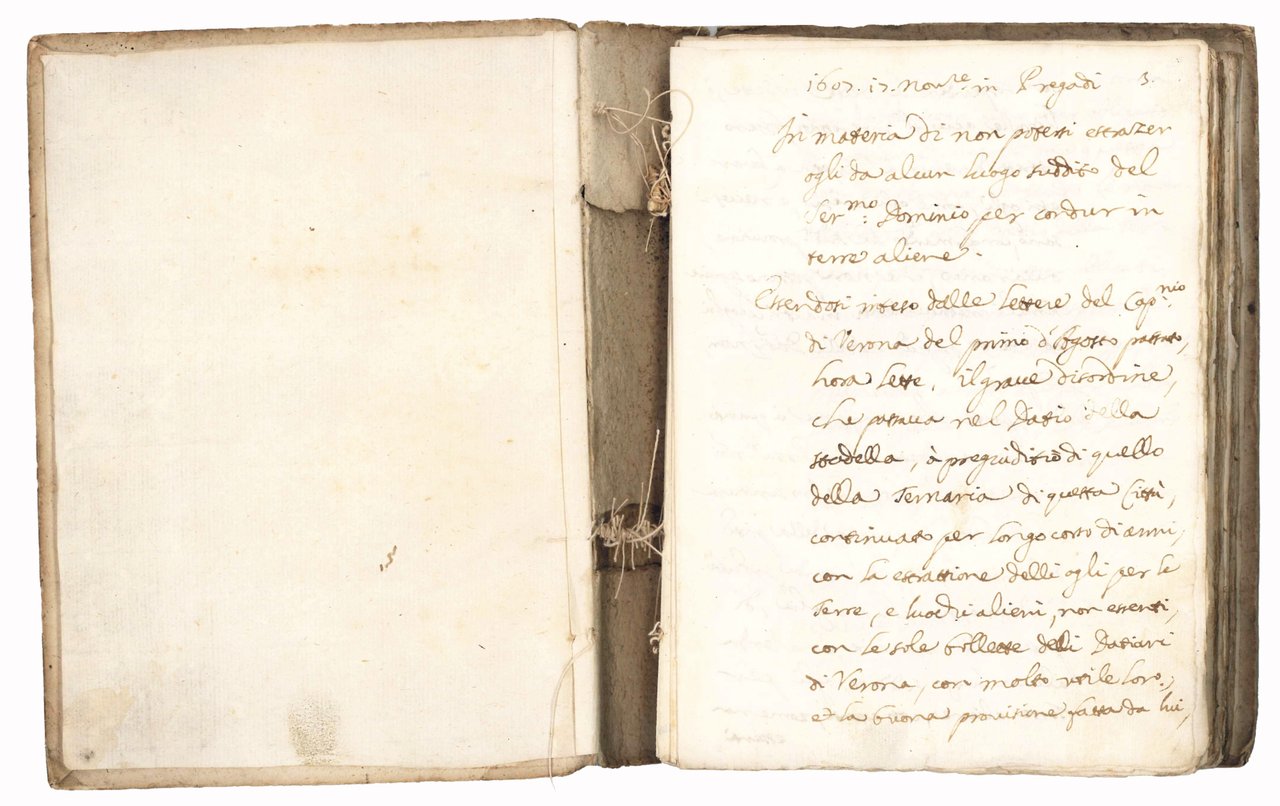 1607. 17. Nov.re in Pregadi 3.
In materia di non potersi estrazer
ogli da alcun luogo suddito del
Ser.mo: Dominio per condur in
terre aliene.
Essendosi inteso dalle lettere del Cap.nio
di Verona del primo d'Agosto passato,
hora lette, il grave disordine,
che passava nel Datio della
stadella, à pregiuditio di quello
della Ternaria di questa Città,
continuato per longo corso di anni,
con la estrattione delli ogli per le
Terre, e luochi alieni, non essenti,
con le sole bollette deli Datiari
di Verona, con molto utile loro,
et la buona provisione fatta da lui,